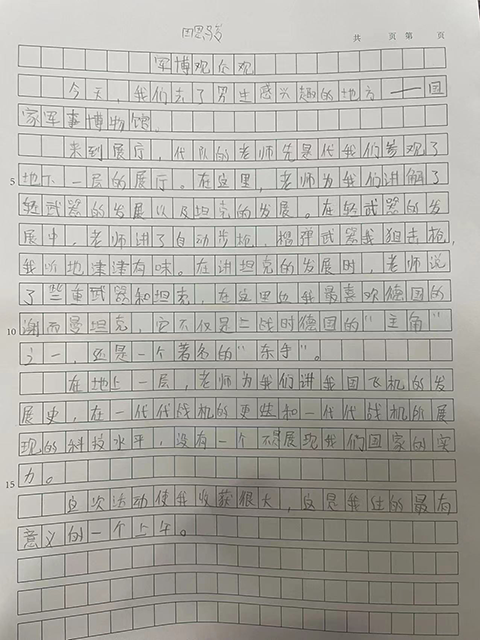 共 页 第 页
军博观后观
今天，我们去了男生感兴趣的地方——国
家军事博物馆。
来到展厅，代队的老师先是代我们参观了
5 地下一层的展厅。在这里，老师为我们讲解了
轻武器的发展以及坦克的发展。在轻武器的发
展中，老师讲了自动步枪、榴弹武器和狙击枪，
我听地津津有味。在讲坦克的发展时，老师说
了些重武器和坦克，在这里边我最喜欢德国的
10 谢尔曼坦克，它不仅是二战时德国的“主角”
之一，还是一个著名的“杀手”。
在地上一层，老师为我们讲我国飞机的发
展史，在一代代战机的更迭和一代代战机所展
现的科技水平，没有一个不展现我们国家的实
15 力。
这次活动使我收获很大，这是我过的最有
意义的一个上午。